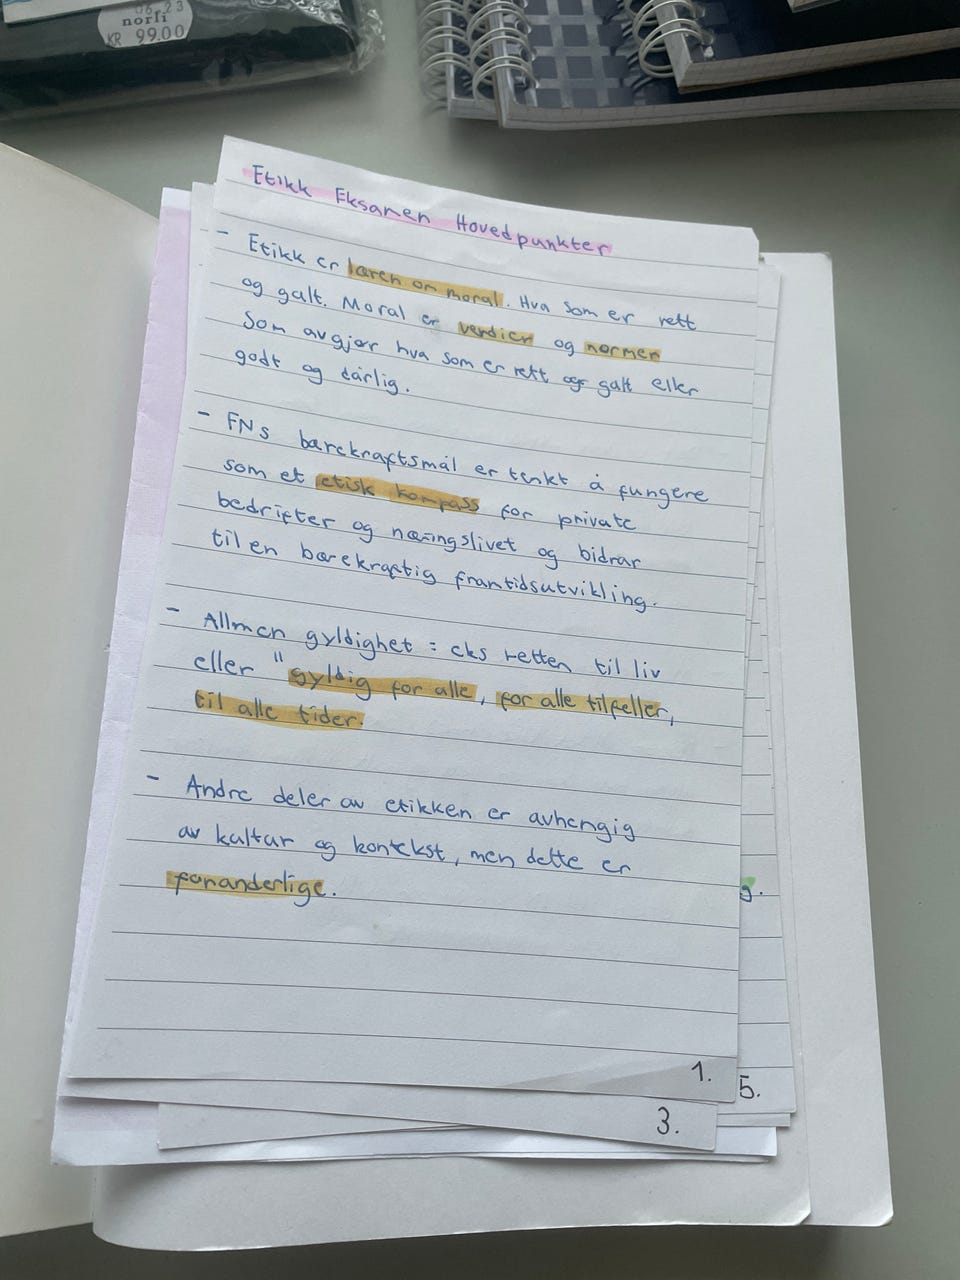 06.23
norli
KR 99.00
Etikk Eksamen Hovedpunkter
- Etikk er læren om moral. Hva som er rett
og galt. Moral er verdier og normer
som avgjør hva som er rett og galt eller
godt og dårlig.
- FNs bærekraftsmål er tenkt å fungere
som et etisk kompass for private
bedrifter og næringslivet og bidrar
til en bærekraftig framtidsutvikling.
- Allmen gyldighet = eks retten til liv
eller "gyldig for alle, for alle tilfeller,
til alle tider.
- Andre deler av etikken er avhengig
av kultur og kontekst, men dette er
foranderlige.
g.
1.
5.
3.